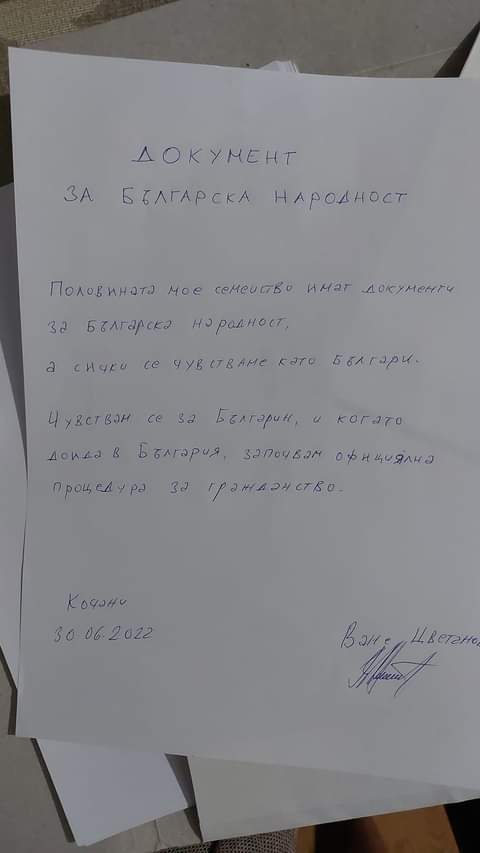 ДОКУМЕНТ
ЗА БЪЛГАРСКА НАРОДНОСТ
Половината мое семейство имат документи
за Българска народност,
а сички се чувстваме като Българи.
Чувствам се за Българин, и когато
дойда в България, започвам официална
процедура за гражданство.
Кочани
30.06.2022
Ване Цветанов